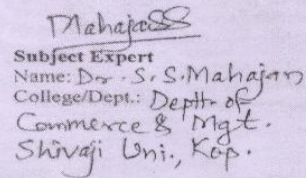 Mahajan SS
Subject Expert
Name: Dr. S. S. Mahajan
College/Dept.: Deptt. of
Commerce & Mgt.
Shivaji Uni., Kop.